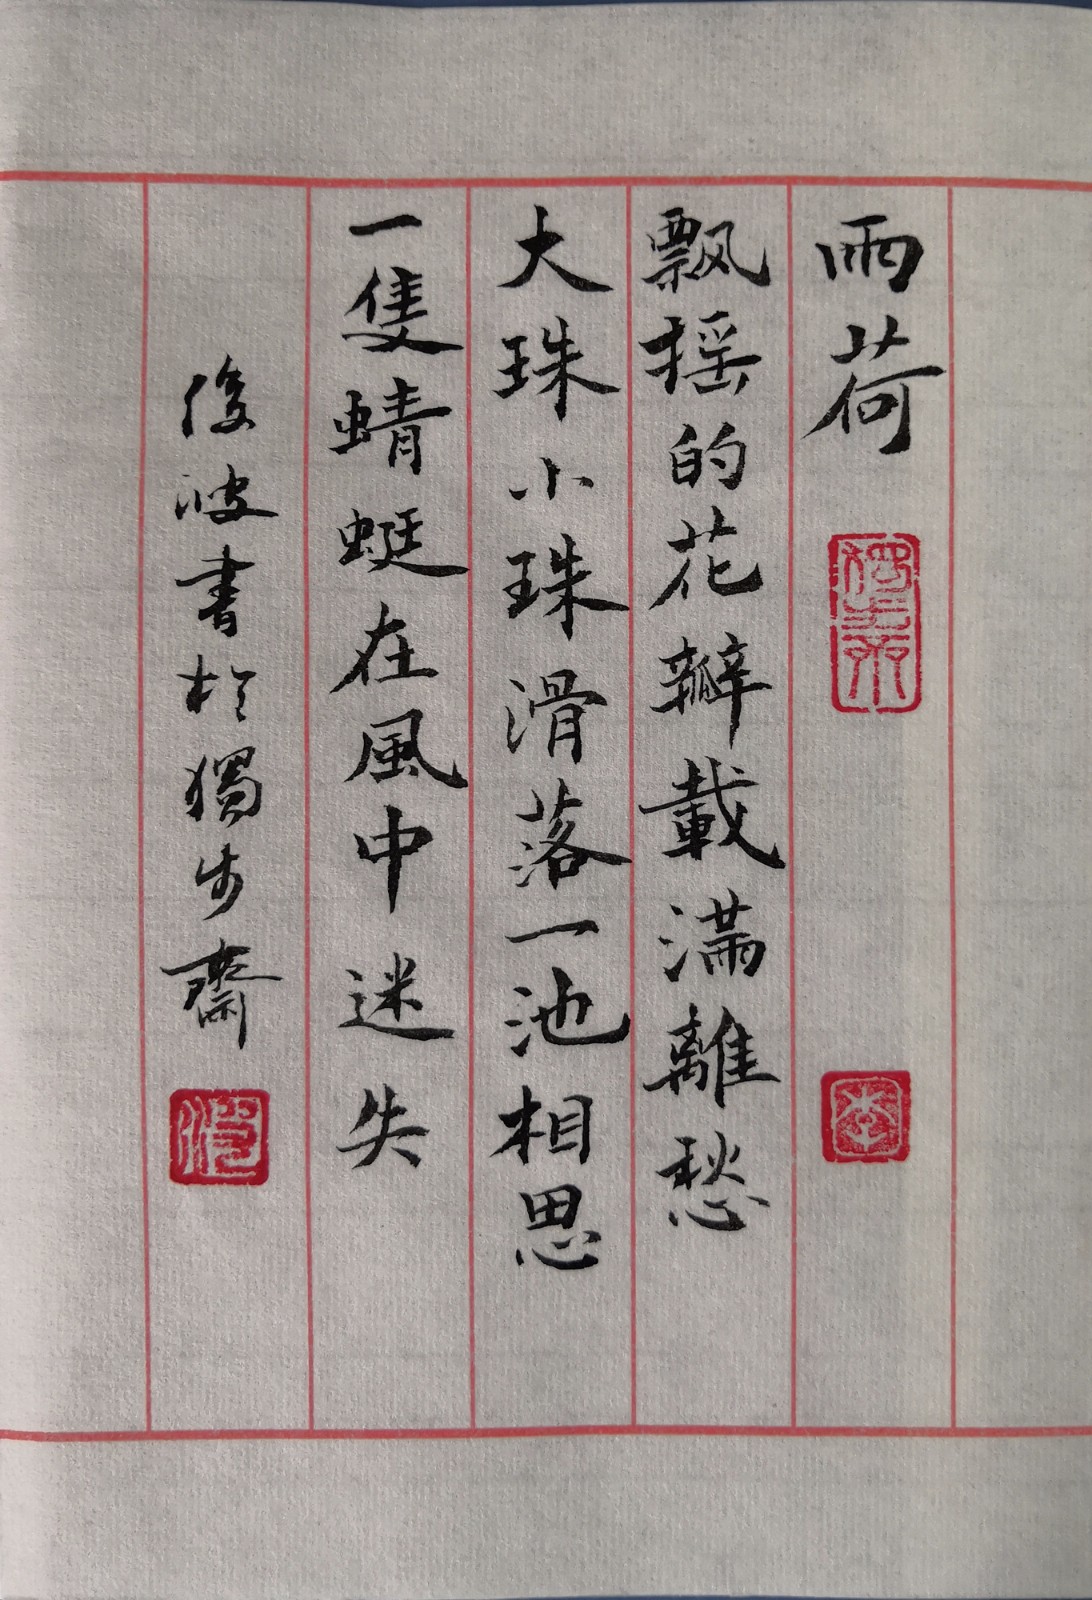 雨荷
飘摇的花瓣載滿離愁
大珠小珠滑落一池相思
一隻蜻蜓在風中迷失
俊波書於獨步齋
李